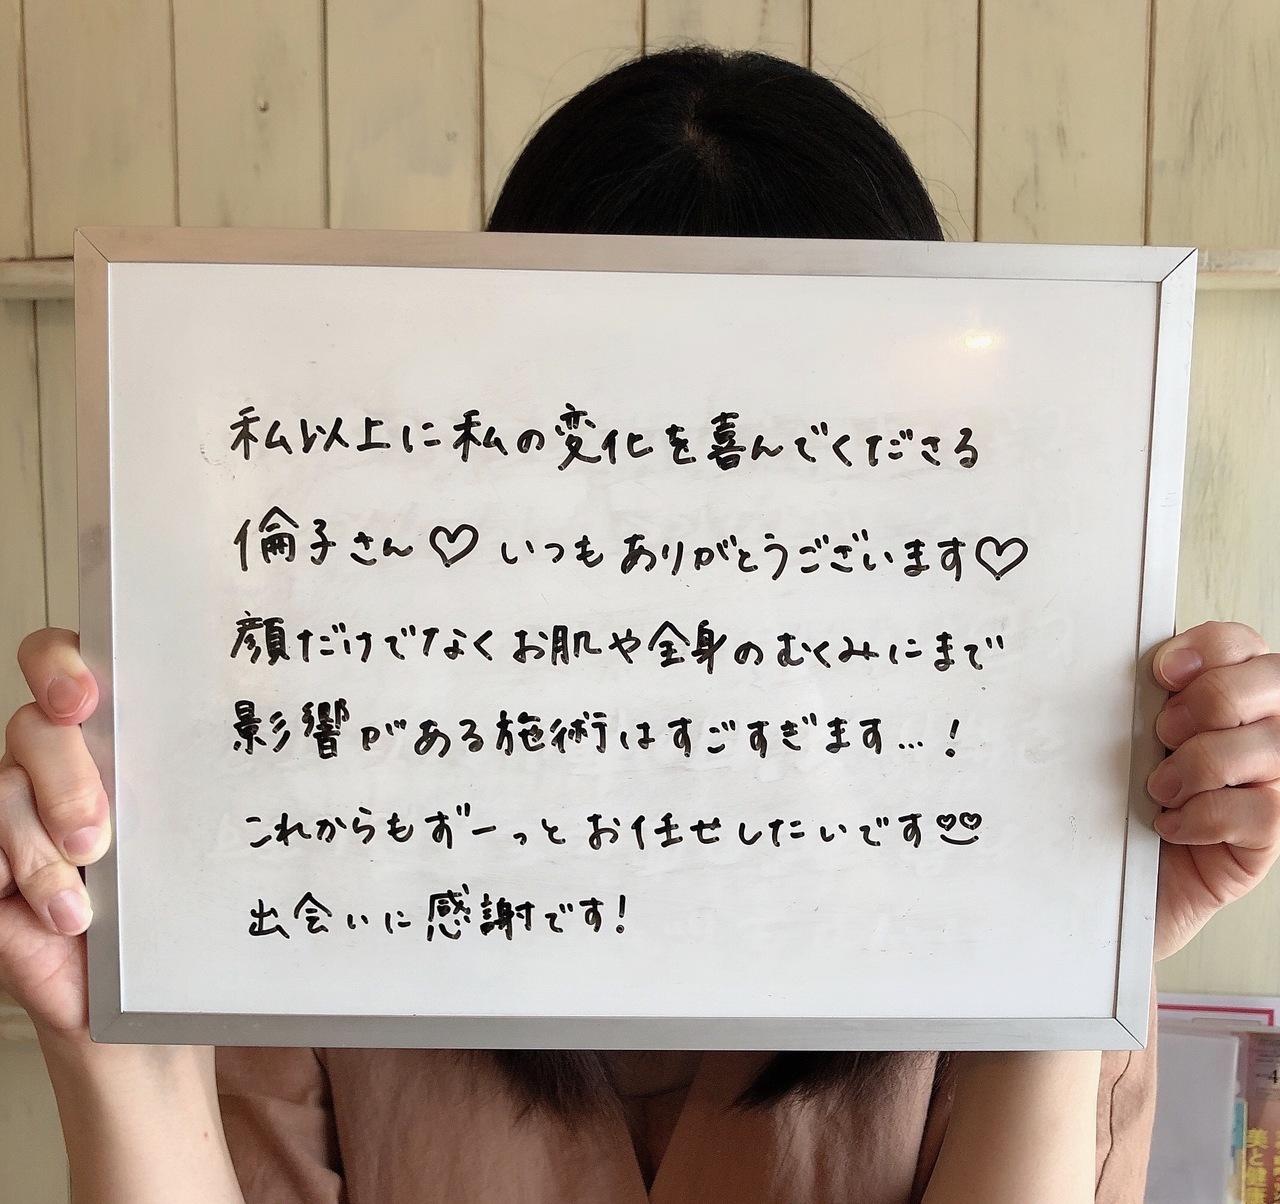 私以上に私の変化を喜んでくださる
倫子さん♡いつもありがとうございます♡
顔だけでなくお肌や全身のむくみにまで
影響がある施術はすごすぎます…!
これからもずーっとお任せしたいです
出会いに感謝です!
美と健